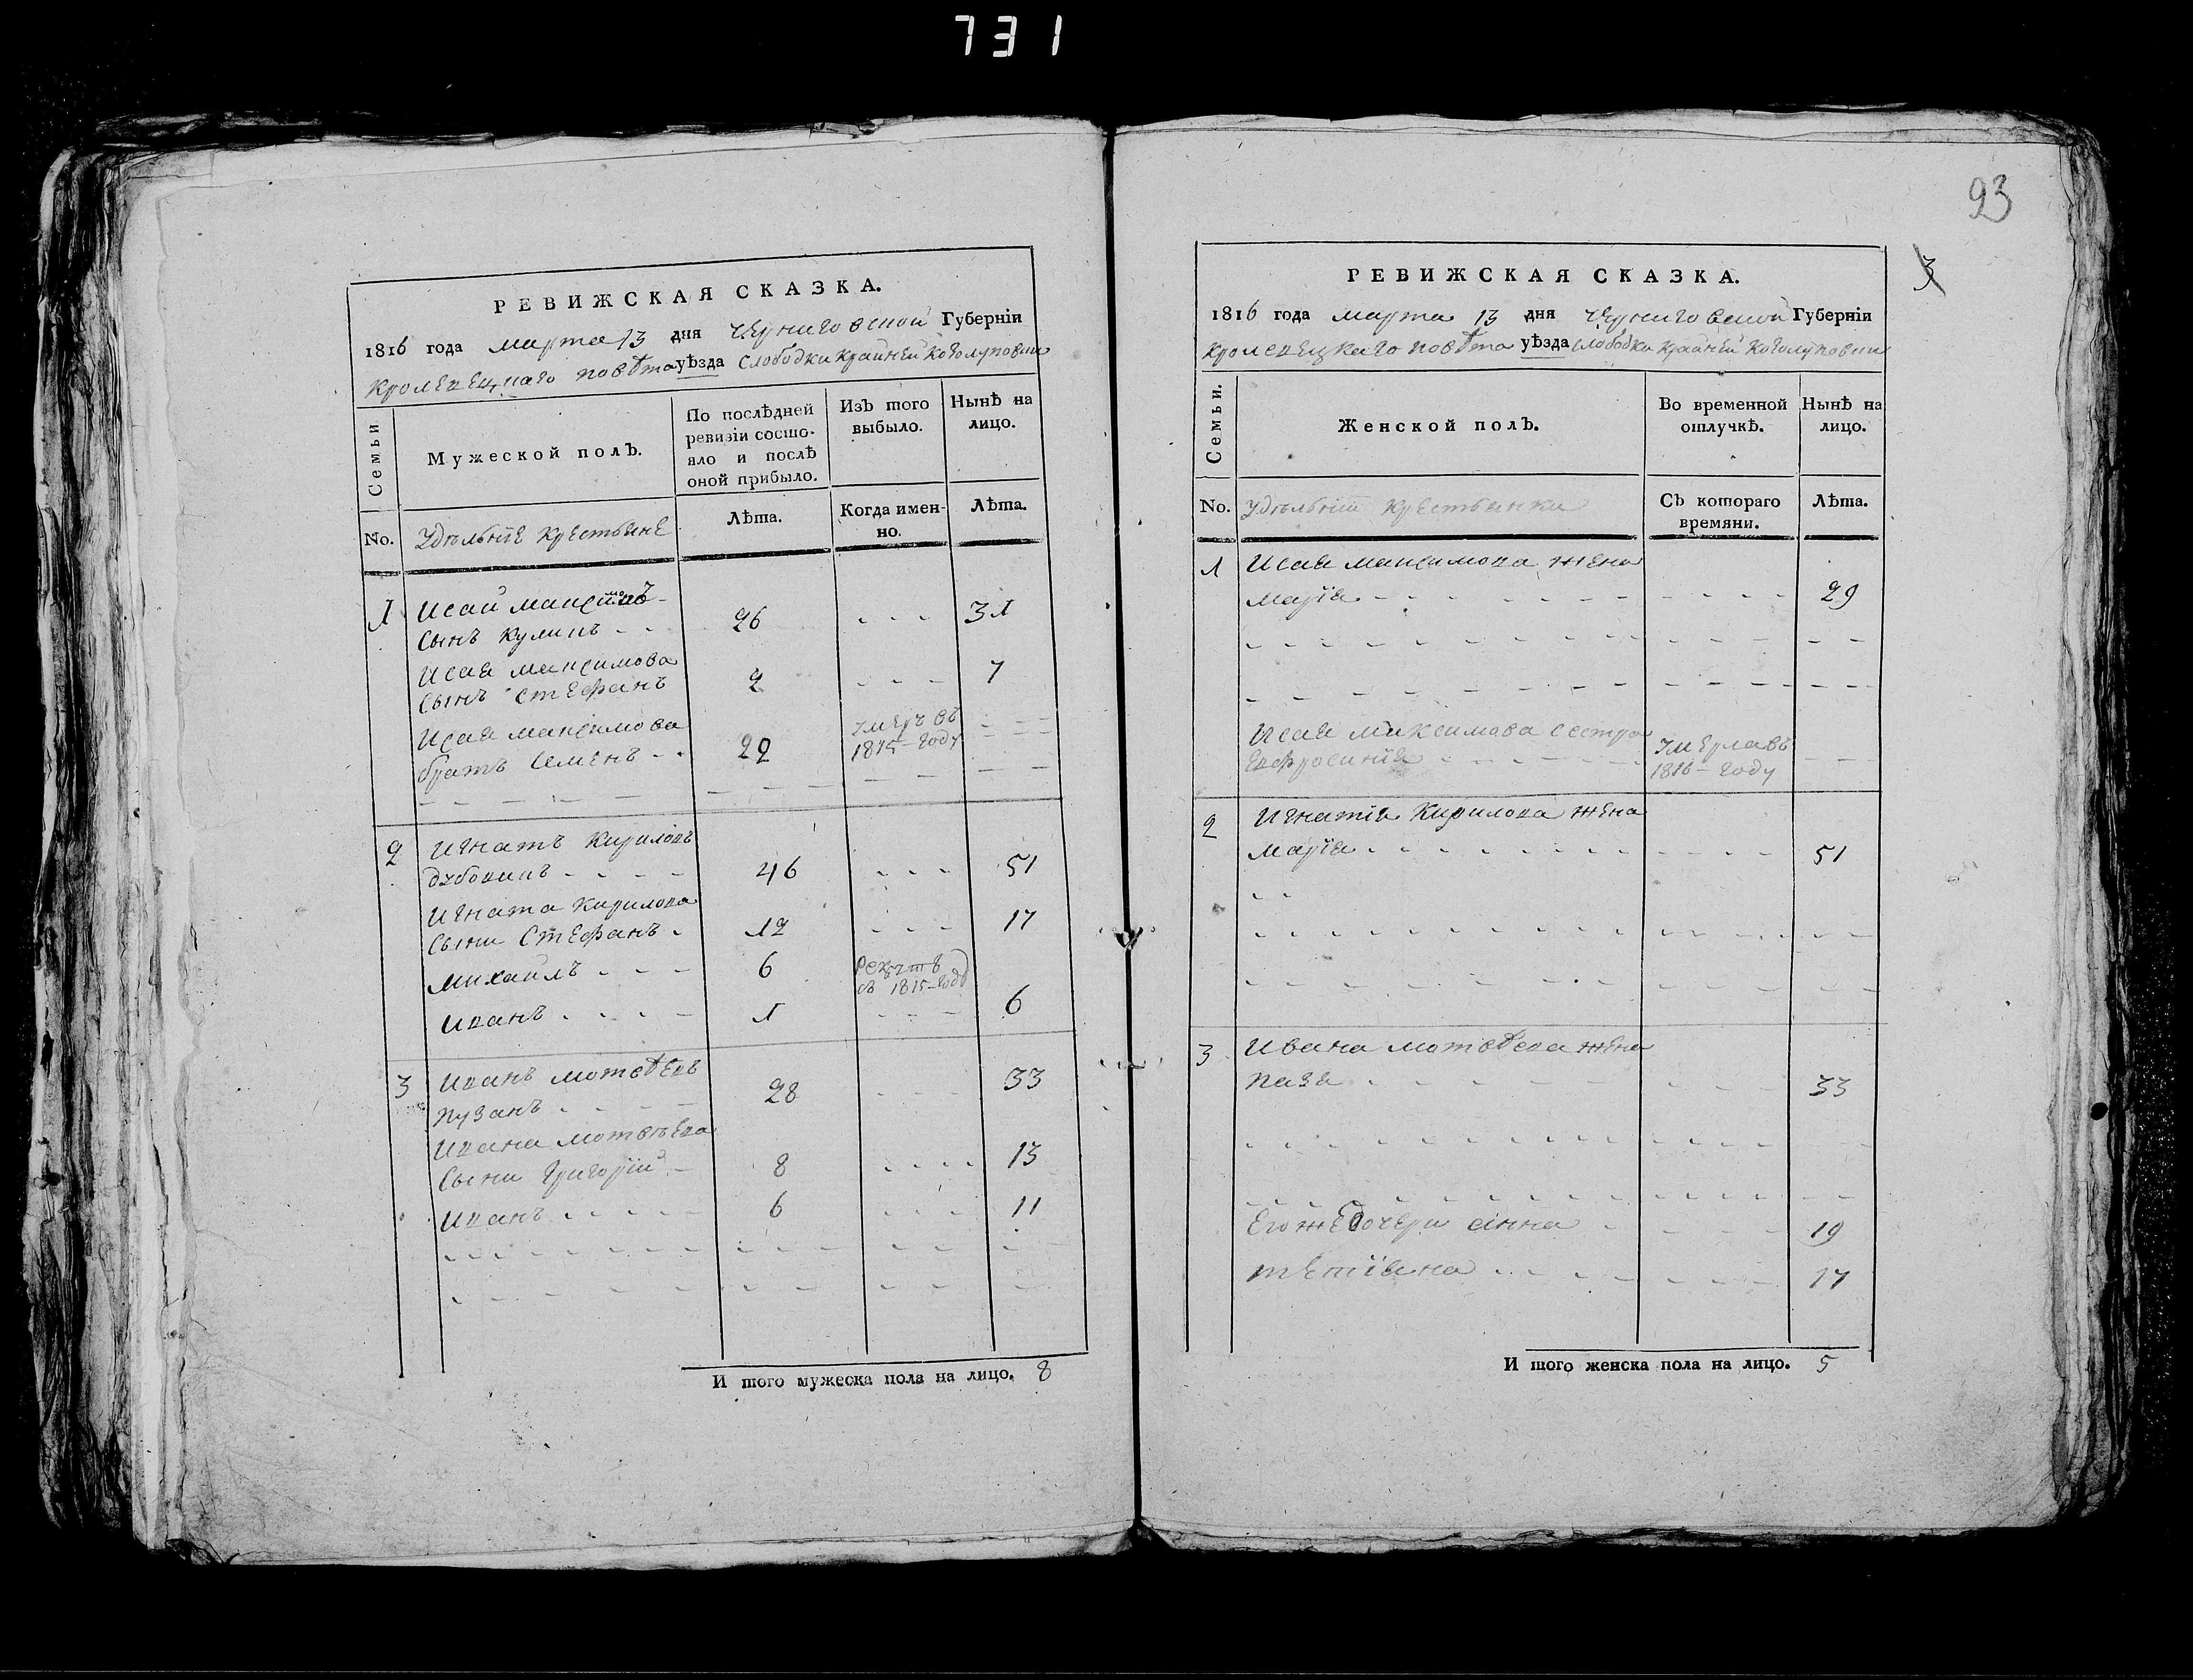 731
РЕВИЖСКАЯ СКАЗКА.
1816 года марта 13 дня Черниговской Губерніи
Кролевецкаго повѣта уѣзда Слободки Крайней
Семьи
Мужеской полъ.
По послѣдней ревизіи состояло и послѣ оной прибыло.
Изъ того выбыло.
Нынѣ на лицо.
No.
Удѣльніе крестьяне
Лѣта.
Когда именно.
Лѣта.
1 Исай Максимовъ
сынъ Кулинъ - - 26 - - - 31
Исая Максимова
сынъ Стефанъ 2 - - - 7
Исая Максимова умеръ въ
братъ Семенъ - - 22 1815-году
2 Игнатъ Кириловъ
46 - - - 51
Игната Кирилова
сыни Стефанъ - 12 - - - 17
Михайлъ - - - 6 въ 1815-году
Иванъ - - - - 1 - - - 6
3 Иванъ Мотвѣевъ
Пузанъ - - - - 28 - - - 33
Ивана Мотвѣева
сыни Григорій - 8 - - - - 13
Иванъ - - - - - 6 - - - 11
И того мужеска пола на лицо. 8
93
3
РЕВИЖСКАЯ СКАЗКА.
1816 года марта 13 дня Черниговской Губерніи
Кролевецкаго повѣта уѣзда Слободки Крайней
Семьи.
Женской полъ.
Во временной отлучкѣ.
Нынѣ на лицо.
No.
Удѣльніи крестьянки
Съ котораго времяни.
Лѣта.
1 Исая Максимова жена
Марія - - - - 29
Исая Максимова сестра умерла въ
Евфросинія - - - 1816-году
2 Игнатія Кирилова жена
Марія - - - - 51
3 Ивана Мотвѣева жена
- - - - 33
Его же дочери Анна - - - - 19
Тетіяна - - - - 17
И того женска пола на лицо. 5